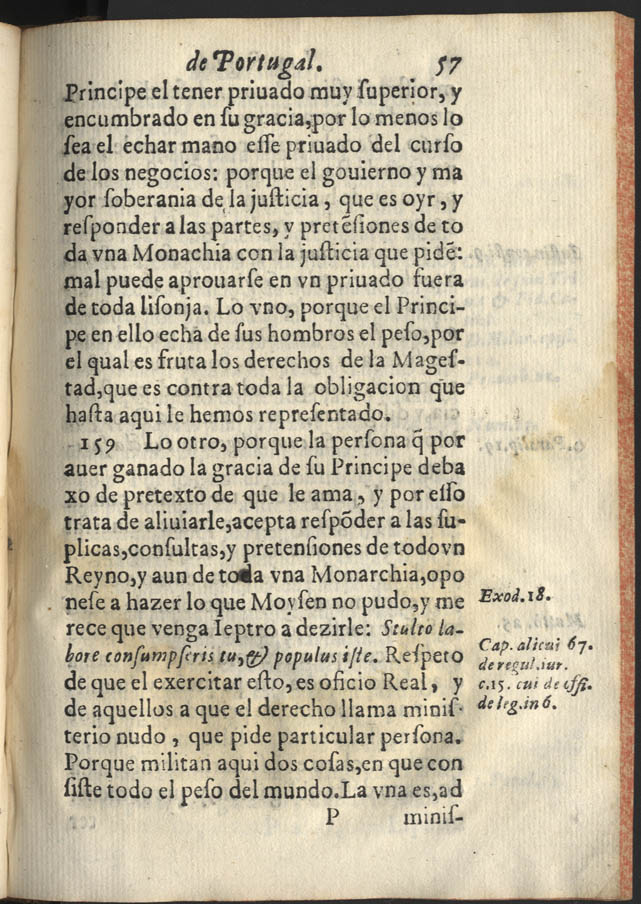 de Portugal. 57
Principe el tener priuado muy ſuperior, y
encumbrado en ſu gracia,por lo menos lo
ſea el echar mano eſſe priuado del curſo
de los negocios: porque el gouierno y ma
yor ſoberania de la juſticia, que es oyr, y
reſponder a las partes, y pretẽſiones de to
da vna Monachia con la juſticia que pidẽ:
mal puede aprouarſe en vn priuado fuera
de toda liſonja. Lo vno, porque el Princi-
pe en ello echa de ſus hombros el peſo,por
el qual es fruta los derechos de la Mageſ-
tad,que es contra toda la obligacion que
haſta aqui le hemos repreſentado.
159 Lo otro, porque la perſona q̃ por
auer ganado la gracia de ſu Principe deba
xo de pretexto de que le ama, y por eſſo
trata de aliuiarle,acepta reſpõder a las ſu-
plicas,conſultas,y pretenſiones de todo vn
Reyno,y aun de toda vna Monarchia,opo
neſe a hazer lo que Moyſen no pudo,y me
rece que venga Ieptro a dezirle: Stulto la-
bore conſumpſeris tu,& populus iſte. Reſpeto
de que el exercitar eſto, es oficio Real, y
de aquellos a que el derecho llama miniſ-
terio nudo, que pide particular perſona.
Porque militan aqui dos coſas,en que con
ſiſte todo el peſo del mundo.La vna es,ad
P miniſ-
Exod.18.
Cap. alicui 67.
de regul.iur.
c.15. cui de offi.
de leg.in 6.